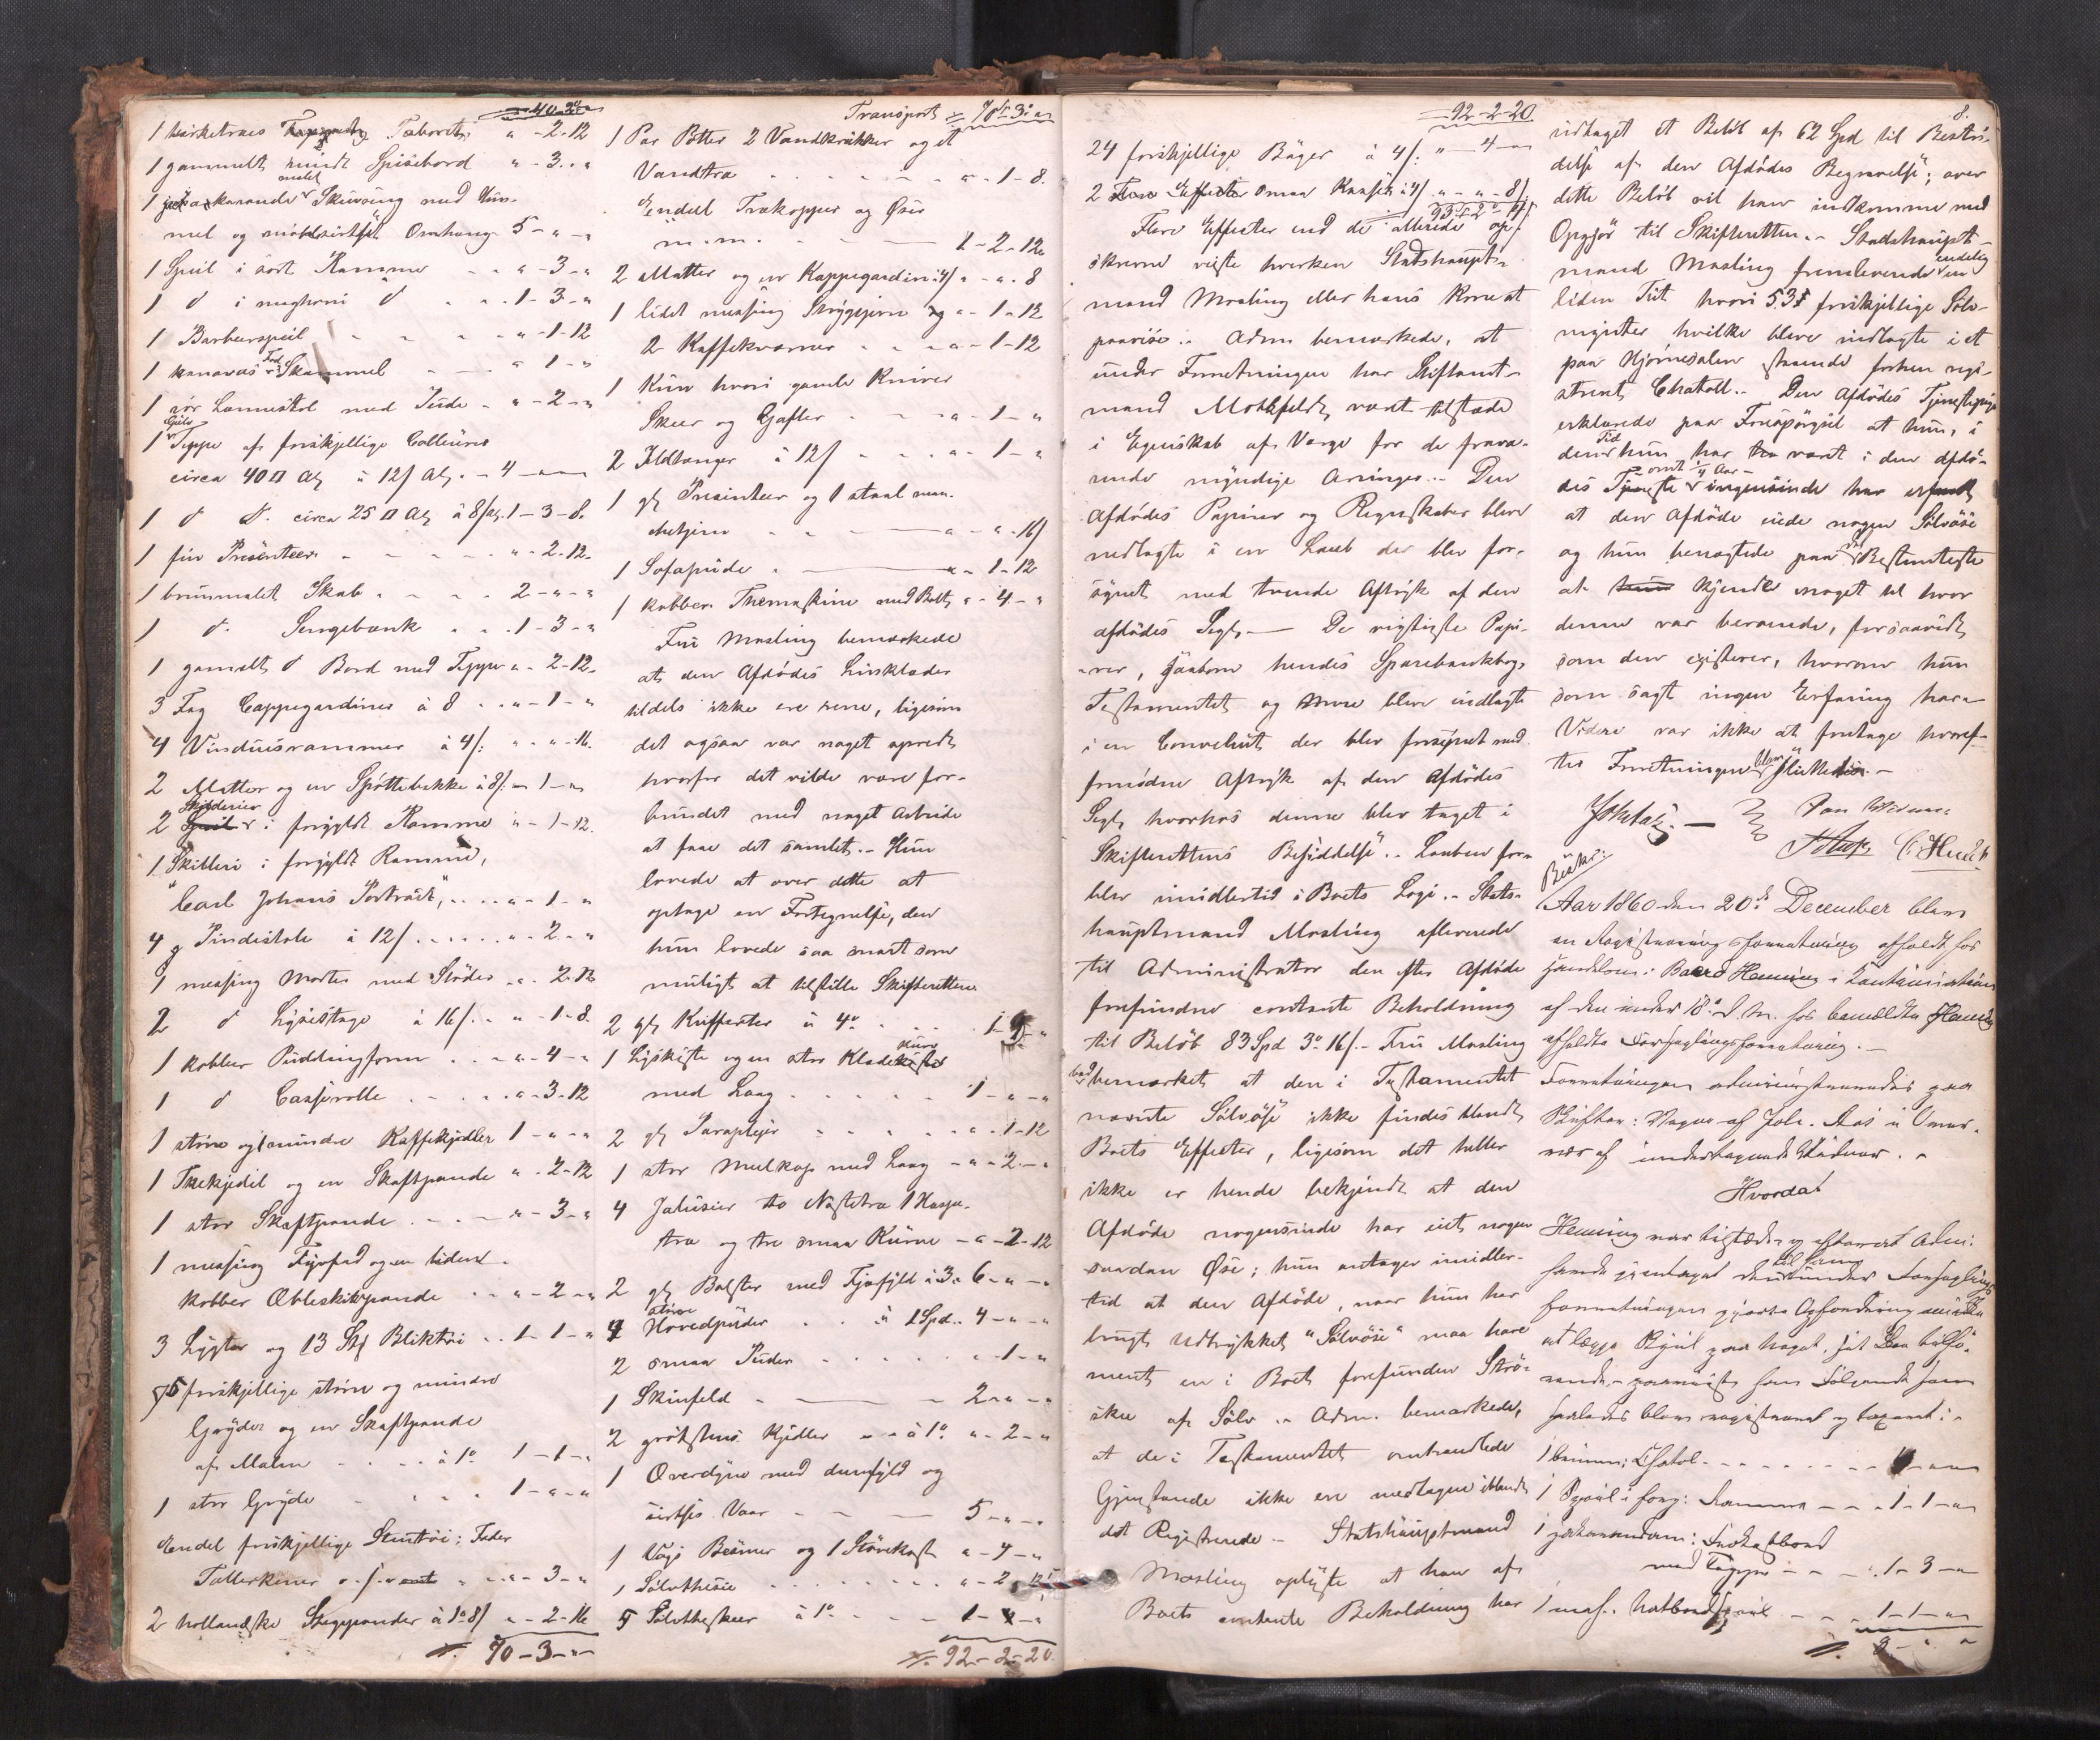 40-2-"
1 birketræes Taboret " - 2-12
1 gammelt rundt Spisebord " - 3 - "
malet
1 Skuring med Him-
mel og Omhæng 5 - " - "
1 Speil i sort Ramme " - 3 - "
1 d i maghoni d 1 - 3 - "
1 Barbeerspeil " - 1 - 12
1 kanavas Fod Skammel " - 1 - "
1 Lænnestol med Pude " - 2 - "
1 Gulv Teppe af forskjellige Colleurer
circa 40 □ Al à 12/ Al. - 4 - " - "
1 d d. circa 25 □ Al à 8/Al. 1 - 3 - 8.
1 fiir Præsenteer " - 2-12.
1 bruunmalet Skab 2 - " - "
1 d. Sengebænk 1 - 3 - "
1 gamelt d Bord med Teppe " - 2-12.
3 Fag Cappegardiner à 8 " - 1 - "
4 Vinduusrammer à 4/: " - " - 16.
2 Matter og en Spøttebakke à 8/. " - 1 - "
2 Skilderier i forgyldt Ramme " - 1 - 12.
1 Skilleri i forgyldt Ramme,
"Carl Johans Portræit", " - 1 - "
4 g Pindestole à 12/ " - 2 - "
1 messing Morter med Støder " - 2-12
2 d Lysestage à 16/ " - 1 - 8.
1 kobber Puddingform " - 4 - "
1 d Casserolle " - 3-12
1 større og 1 mindre Kaffekjedler 1 - " - "
1 Theekjedel og en Skaftpande " - 2-12
1 stor Skaftpande " - 3 - "
1 messing Fyrfad og en liden
kobber Æbleskivpande " - 2 - "
3 Lygter og 13 Stk Bliktøi 1 - 1 - "
5 forskjellige større og mindre
Gryder og en Skaftpande
af Malm à 1° 1 - 1 - "
1 stor Gryde 1 - " - "
Endel forskjellige Steentøi; Fader
Tallerkener " - 3 - "
2 hollandske Steggpander à 1°8/ " - 2-16
70 - 3 - "
Transport 70 - 3 - "
1 Par Potter 2 Vandkrukker og et
Vandtræ " - 1 - 8.
Endel Trækopper og Øser
m.m. 1 - 2 - 12
2 Matter og en Kappegardin à 4/ " - " - 8
1 lidet messing Strygejern " - 1 - 12
2 Kaffekværner " - 1 - 12
1 Kurv hvori gamle Kniver
Skeer og Gafler " - 1 - "
2 Ildtænger à 12/ " - 1 - "
1 gl Præsenteer og 1 staal
" - " - 16/
1 Sofapude " - 1 - 12
1 kobber Themaskine med Bolt " - 4 - "
Fru Mosling bemærkede
at den Afdødes Linklæder
tildels ikke ere rene, ligesom
det ogsaa var noget spredt
hvorfor det vilde være for-
bundet med noget Arbeide
at faae det samlet. - Hun
lovede at over dette at
optage en Fortegnelse, den
hun lovede saa snart som
muligt at tilstille Skifteretten
2 gl Kufferter à 4° 1 - 3 - "
1 Lyskiste og en stor Klædekurv
med Laag 1 - " - "
2 gl Paraplyer " - 1 - 12
1 stor Meelkop med Laag " - 2 - "
4 Jalusier to
træ og tre smaa Kurve " - 2 - 12
2 gl Bolster med Fjærfyld à 3. 6 - " - "
4 større Hovedpuder à 1 Spd. 4 - " - "
2 smaa Puder " - 1 - "
1 Skinfeld 2 - " - "
2 grødstens Kjedler à 1° " - 2 - "
1 Overdyne med duunfyld og
Vaar 5 - " - "
1 Vægt Besmer og 1 Støvekost " - 4 - "
1 Sølvthesie " - 2 -
5 Sølvtheskeer à 1° 1 - "
92 - 2 - 20
92 - 2 - 20
24 forskjellige Bøger à 4/: " - 4 - "
2 smaa Kander à 4/ " - " - 8/
93 - 2 - 4/
Flere Effecter end de allerede op-
skrevne viste hverken Stadshaupt-
mand Mosling eller hans Kone at
paavise. - Adm. bemærkede, at
under Forretningen har Stiftamt-
mand Motzfeldt været tilstæde
i Egenskab af Værge for de fravæ-
rende myndige Arvinger. - Den
Afdødes Papirer og Regnskaber bleve
nedlagte i en Laub der blev for-
seglet med trende Aftryk af den
afdødes Segl. - De vigtigste Papi-
rer, saasom hendes Sparebankbog,
Testamentet og Mere bleve indlagte
i en Convelut der blev forseglet med
fornøden Aftryk af den Afdødes
Segl, hvorhos denne blev taget i
Skifterettens Besiddelse. - Lauben for-
blev imidlertid i Boets Logi. - Stads-
hauptmand Mosling afleverede
til Administrator den efter Afdøde
forefundne contante Beholdning
til Beløb 83 Spd 3° 16/. - Fru Mosling
bemærket at den i Testamentet
nævnte Sølvøse ikke findes blandt
Boets Effecter, ligesom det heller
ikke er hende bekjendt at den
Afdøde nogensinde har eiet nogen
saadan Øse; hun antager imidler-
tid at den Afdøde, naar hun har
brugt Udtrykket "Sølvøse" maa have
meent en i Boet forefunden Strø-
skee af Sølv. - Adm. bemærkede,
at de i Testamentet omhandlede
Gjenstande ikke ere medtagne iblandt
det Registrerede. - Stadshauptmand
Mosling oplyste at han af
Boets contante Beholdning har
8.
udtaget et Beløb af 62 Spd til Bestri-
delse af den Afdødes Begravelse; over
dette Beløb vil han indkomme med
Opgjør til Skifteretten. - Stadshaupt-
mand Mosling fremleverede endelig en
liden Tiit hvori 53 forskjellige Sølv-
mynter hvilke bleve indlagte i et
paa Hjørnesalen staaende forhen regi-
streret Chatoll. - Den Afdødes Tjenestepige
erklærede paa Forespørgsel at hun, i
den Tid hun har været i den Afdø-
des Tjeneste omt. 1/4 Aar ingensinde har
at den Afdøde eiede nogen Sølvøse
og hun benægtede paa det Bestemteste
at kjende noget til hvor
denne var beroende, forsaavidt
som den existerer, hvorom hun
som sagt ingen Erfaring har
Videre var ikke at foretage hvoref-
ter Forretningen blev sluttet. -
Aar 1860 den 20de December blev
en Registreringsforretning afholdt hos
Handelsm: Baard Henning i Continuation
af den under 18 d. M. hos bemeldte Henning
afholdte Forseglingsforretning. -
Forretningen administreredes paa
Skifter: Vegne af Joh. i Overvær
af undertegnede Vidner. -
Hvorda!
Henning var tilstæde og efterat Adm:
havde gjentaget den til ham under Forseglings
forretningen gjorte Opfordring
at lægge Skjul paa Noget, hørende
paaviiste han Følgende som
saaledes blev registreret og taxeret: -
1 bruun: Chatol - " - "
1 Speil i forg: Ramme 1 - 1 - "
1 jakarandam: Sofabord
med Teppe 1 - 3 - "
1 mah. 1 - 1 - "
8 - " - "